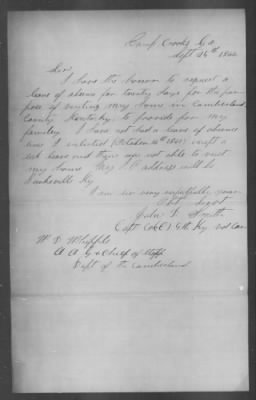 Camp Crooks Ga
Sept 26th 1864
Sir
I have the honor to request a
leave of absence for twenty days for the pur-
pose of visiting my home in Cumberland
County Kentucky to provide for my
family. I have not had a leave of absence
I enlisted (October 14th 1861) except a
sick leave and then was not able to visit
my home My P O address will be
Burkesville Ky
I am sir very respectfully your
Obt Servt
John D Smith
Capt Co (C) 5th Ky Vol Cav
W D Whipple
A A G & Chief of Staff
Dept of the Cumberland